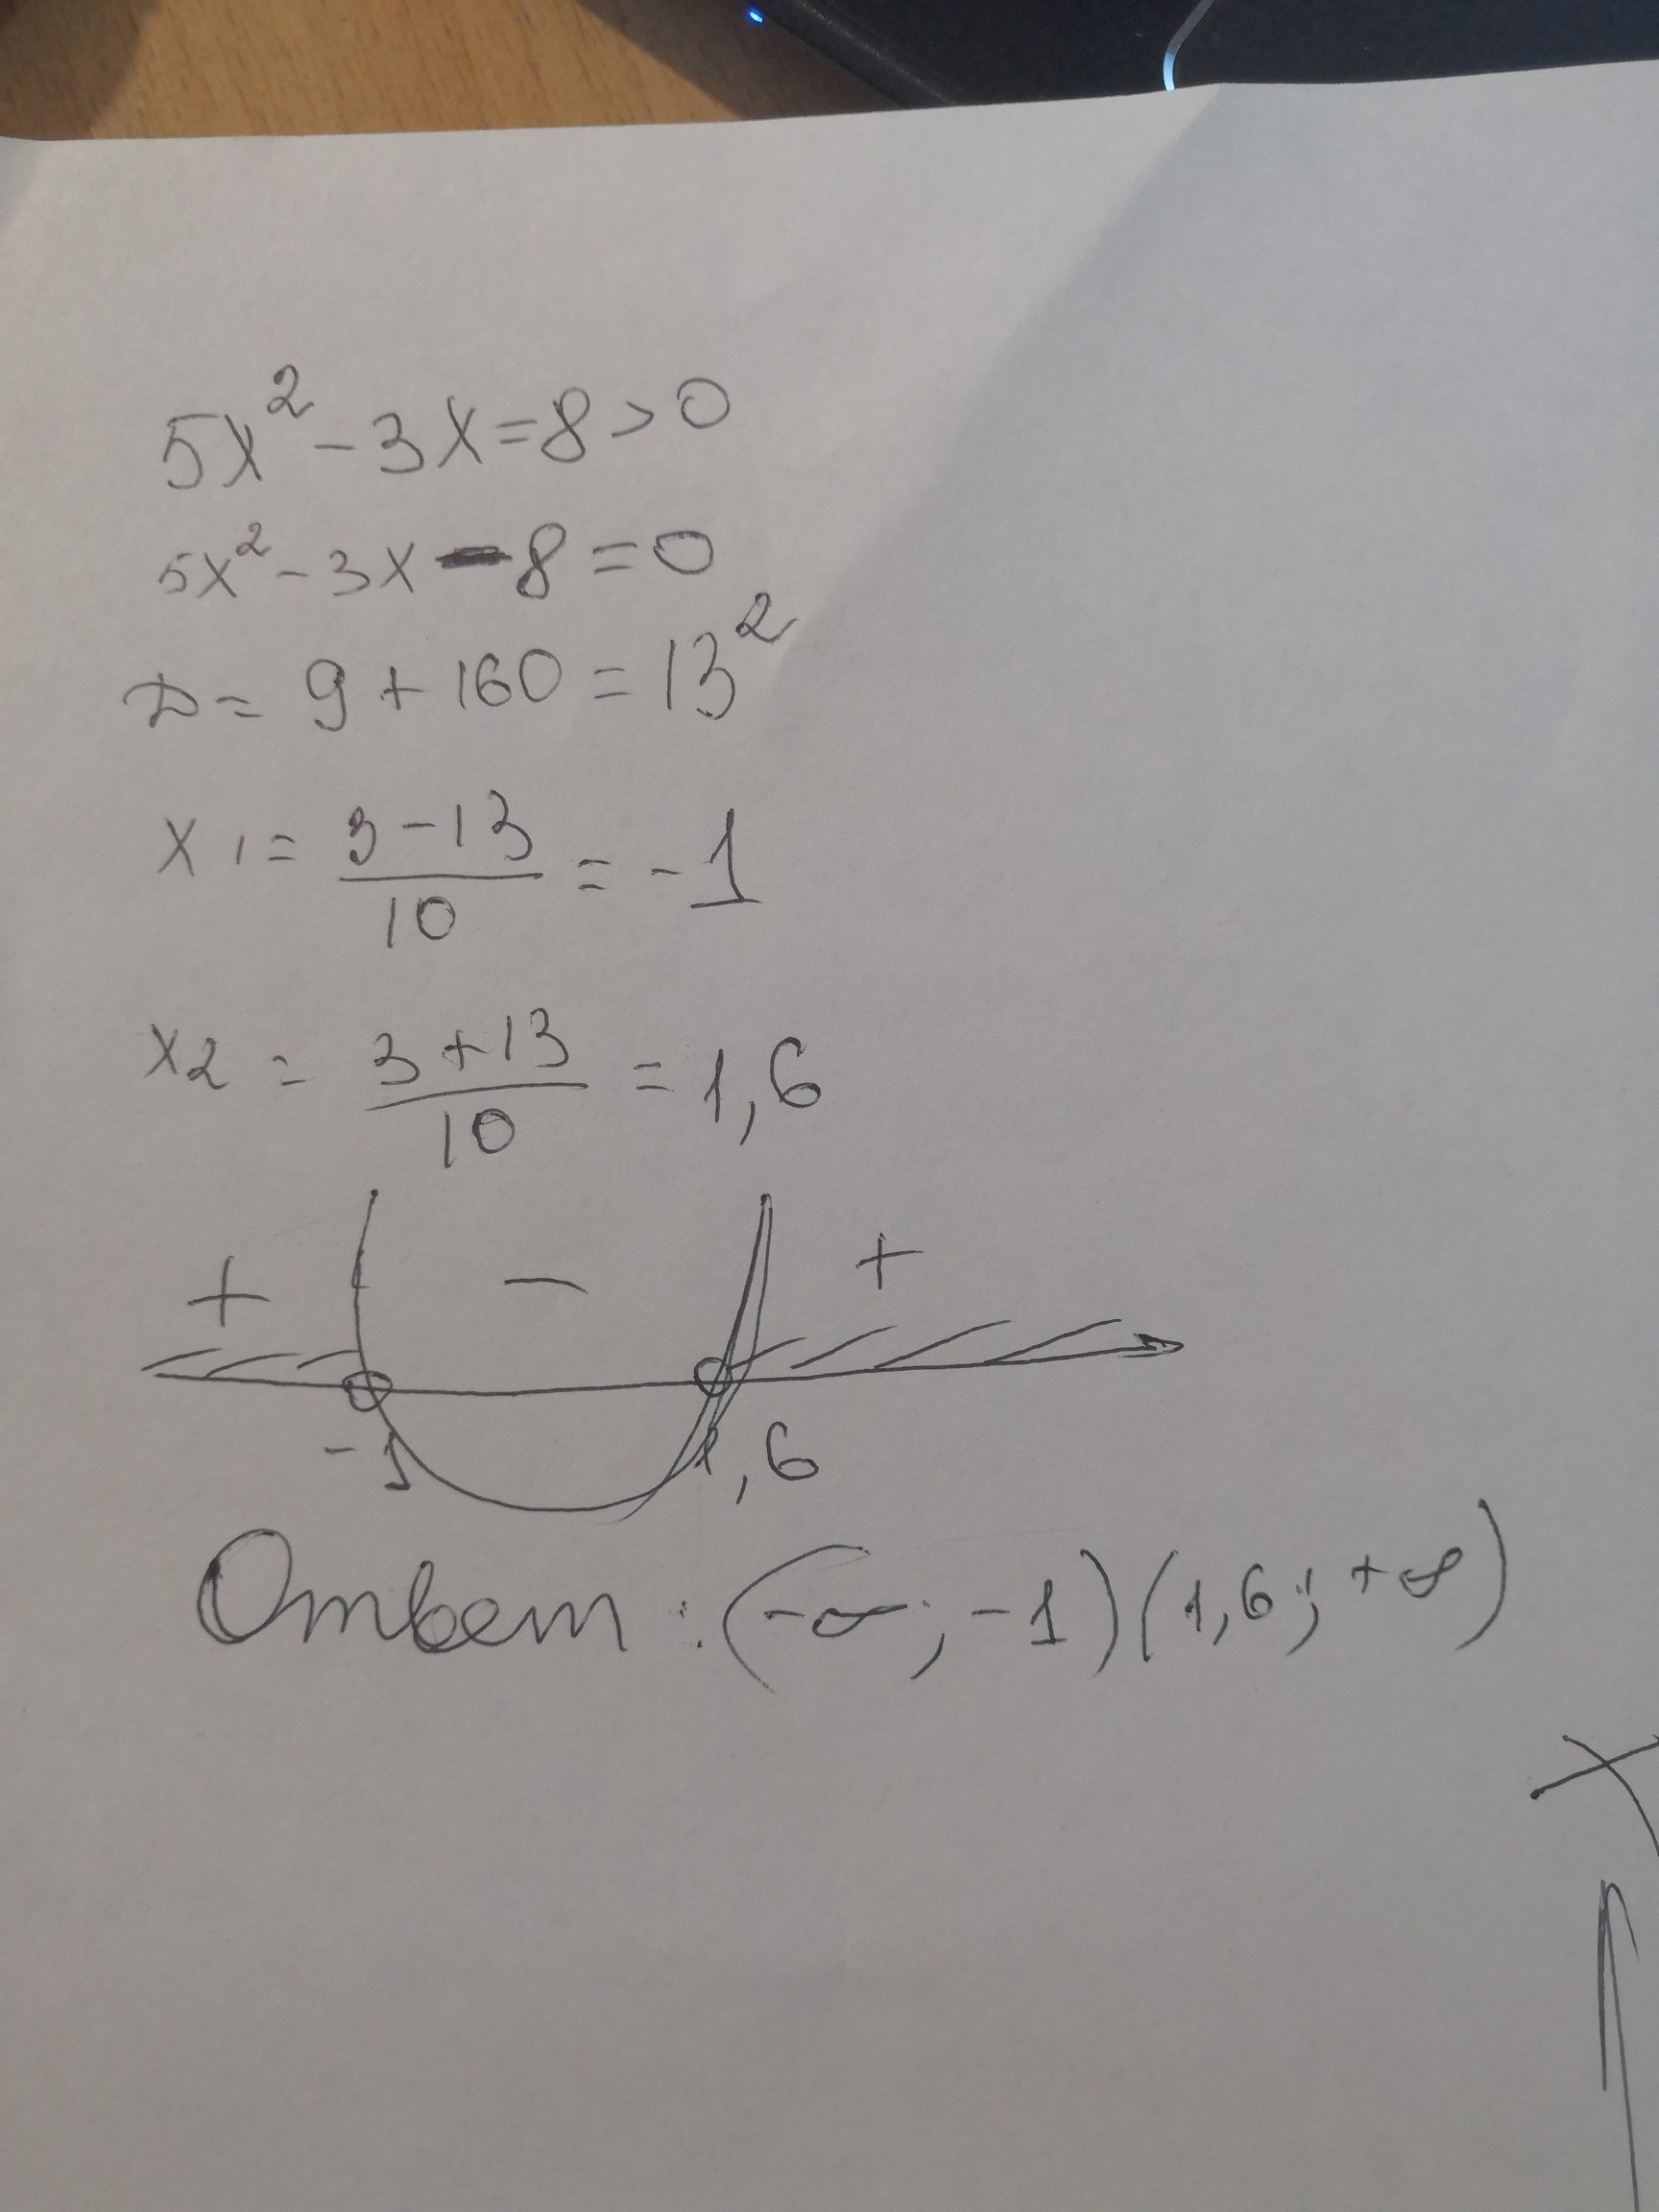 5x² - 3x = 8 > 0
5x² - 3x - 8 = 0
D = 9 + 160 = 13²
x1 = 3 - 13 / 10 = - 1
x2 = 3 + 13 / 10 = 1,6
+ - +
-1 1,6
Ответ: (-∞; -1) (1,6; +∞)